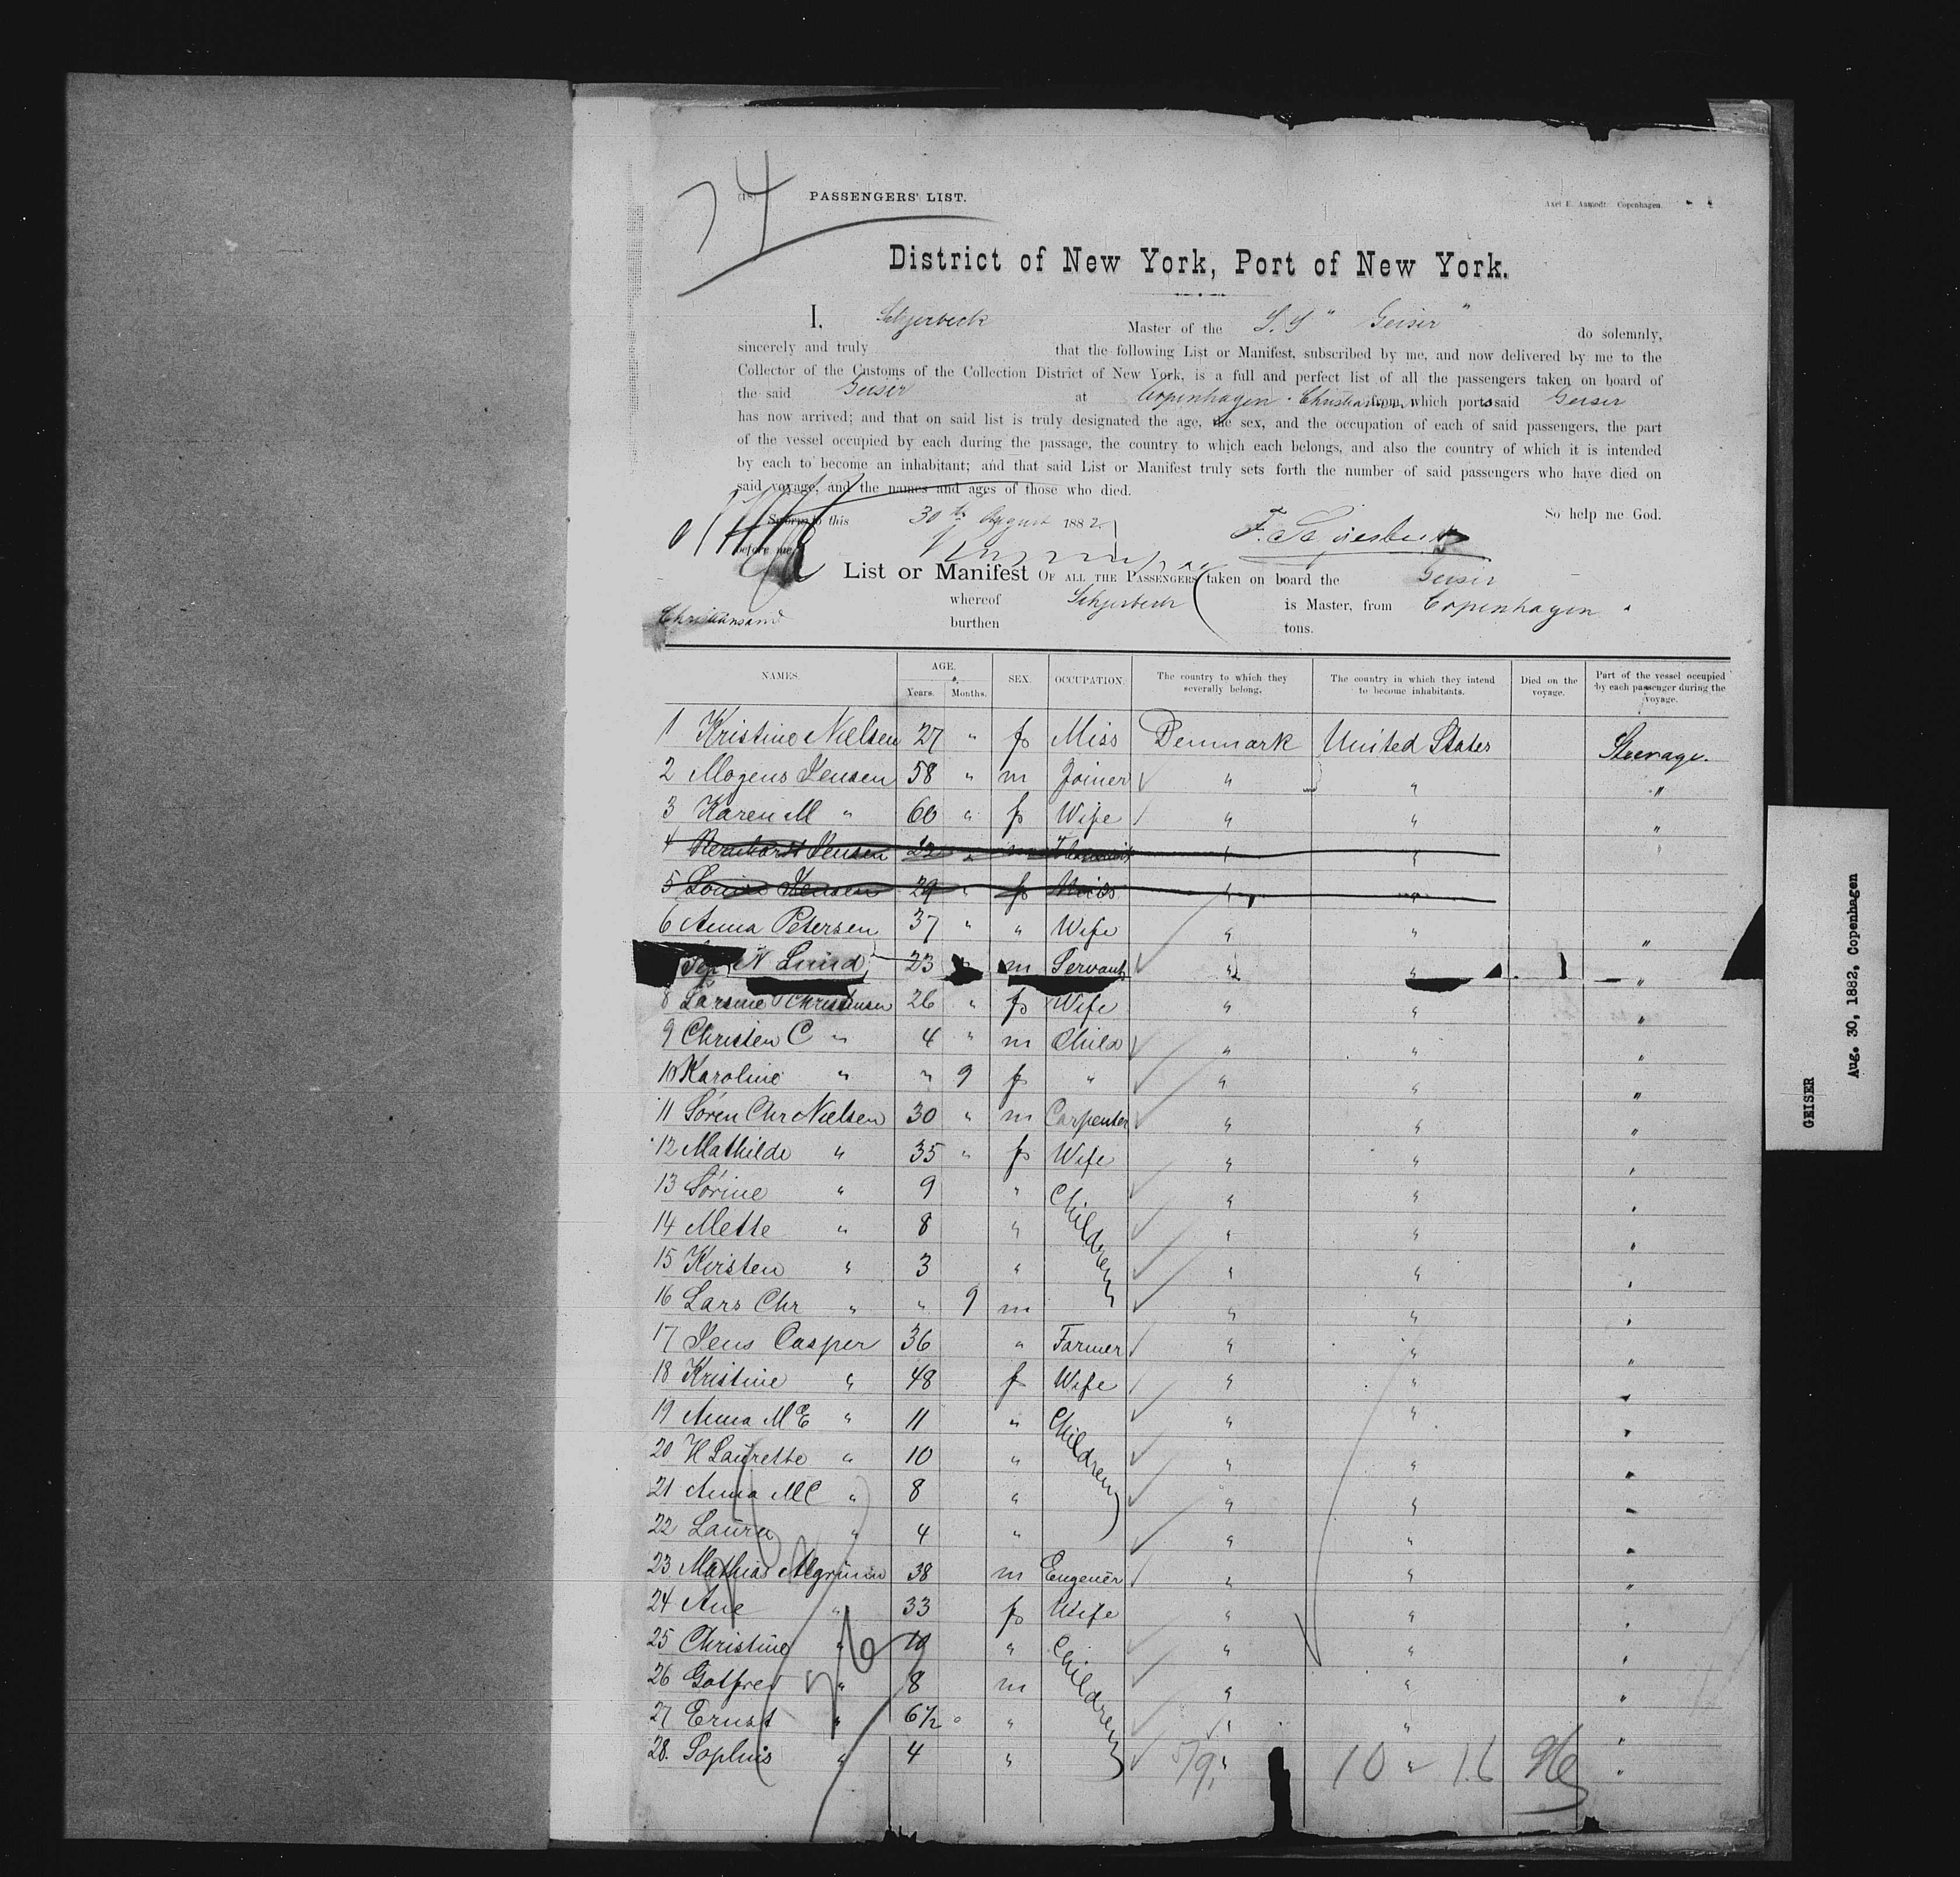 74
(18) PASSENGERS' LIST.
Axel E. Aamodt. Copenhagen.
District of New York, Port of New York.
I, Schjerbeck Master of the S. S " Geiser " do solemnly,
sincerely and truly that the following List or Manifest, subscribed by me, and now delivered by me to the
Collector of the Customs of the Collection District of New York, is a full and perfect list of all the passengers taken on board of
the said Geiser at Copenhagen · Christiansand from which ports said Geiser
has now arrived; and that on said list is truly designated the age, the sex, and the occupation of each of said passengers, the part
of the vessel occupied by each during the passage, the country to which each belongs, and also the country of which it is intended
by each to become an inhabitant; and that said List or Manifest truly sets forth the number of said passengers who have died on
said voyage, and the names and ages of those who died.
So help me God.
Sworn to this 30th August 1882
before me
List or Manifest OF ALL THE PASSENGERS taken on board the Geiser
whereof Schjerbeck is Master, from Copenhagen
Christiansand
burthen tons.
NAMES. AGE. Years. Months. SEX. OCCUPATION. The country to which they severally belong. The country in which they intend to become inhabitants. Died on the voyage. Part of the vessel occupied by each passenger during the voyage.
1 Kristine Nielsen 27 " f Miss Denmark United States Steerage.
2 Mogens Jensen 58 " m Joiner " " "
3 Karen M " 60 " f Wife " " "
4 Jensen 22 " m " " "
5 Louise Jensen 29 " f Miss " "
6 Anna Petersen 37 " " Wife " " "
N Lund 23 " m Servant " " "
8 Larsine Christensen 26 " f Wife " " "
9 Christen C " 4 " m Child " " "
10 Karoline " " 9 f " " " "
11 Sören Chr Nielsen 30 " m Carpenter " " "
12 Mathilde " 35 " f Wife " " "
13 Sörine " 9 " Children " " "
14 Mette " 8 " " " "
15 Kirsten " 3 " " " "
16 Lars Chr " " 9 m " " "
17 Jens Casper 36 " Farmer " " "
18 Kristine " 48 f Wife " " "
19 Anna M E " 11 " Children " " "
20 H Laurette " 10 " " " "
21 Anna M C " 8 " " " "
22 Laura " 4 " " " "
23 Mathias 38 m Engeneer " " "
24 Ane " 33 f Wife " " "
25 Christine " 10 " Children " " "
26 Gotfred " 8 m " " "
27 Ernst " 6½ " " " "
28. Sophus " 4 " " " "
10 16
GEISER
Aug. 30, 1882, Copenhagen